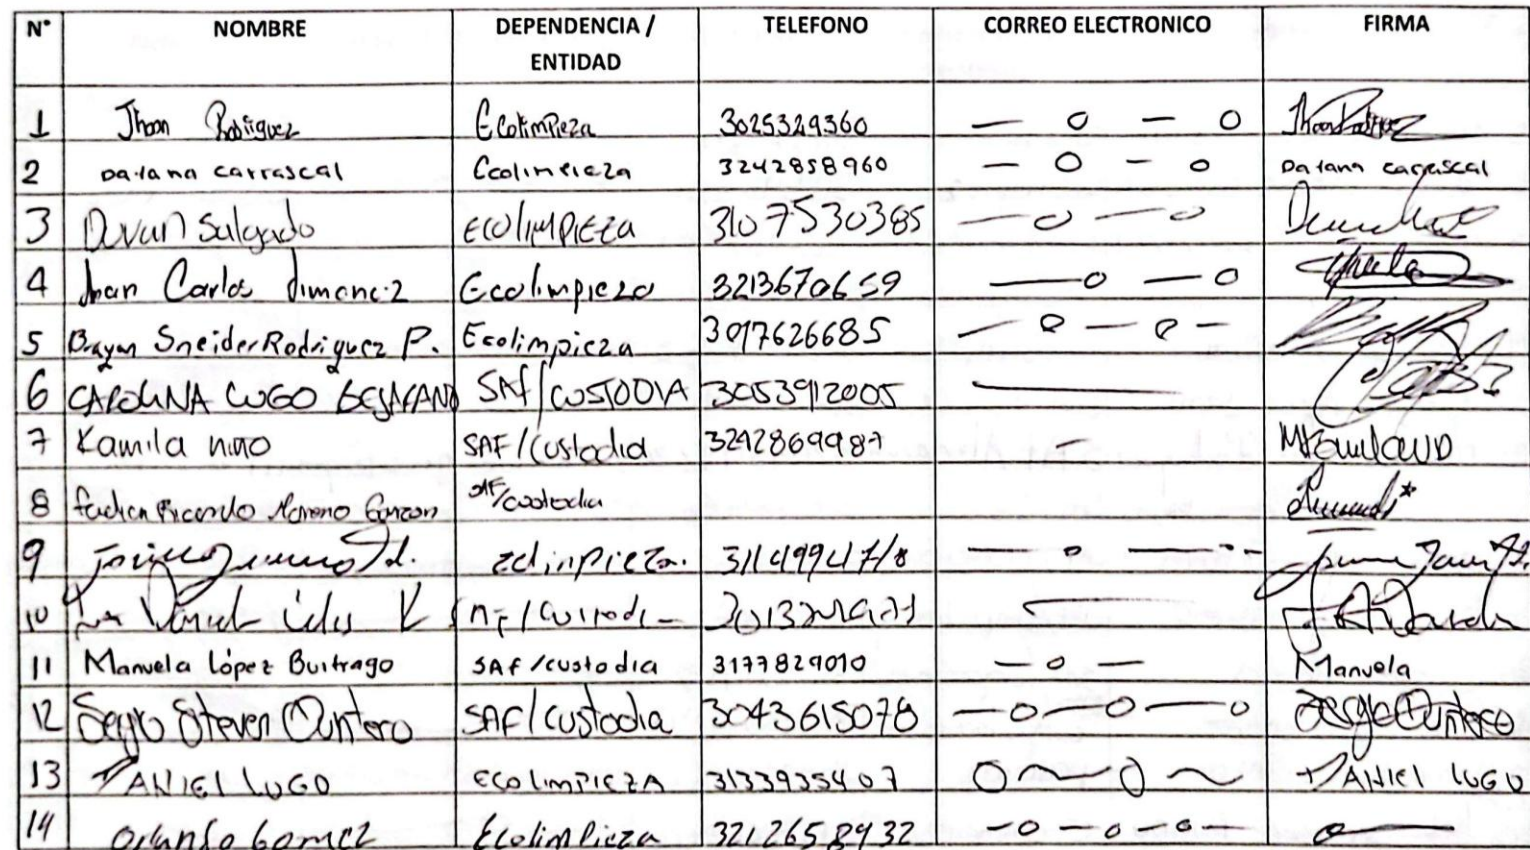 N° NOMBRE DEPENDENCIA / ENTIDAD TELEFONO CORREO ELECTRONICO FIRMA
1 Jhoan Rodriguez Ecolimpieza 3025329360 — o — o
2 Daiana carrascal Ecolimpieza 3242858960 — o — o Daiana carrascal
3 Duvan Salgado Ecolimpieza 3107530385 — o — o
4 Jhan Carlos Jimenez Ecolimpieza 3213670659 — o — o
5 Brayan Sneider Rodriguez P. Ecolimpieza 3017626685 — o — o —
6 CAROLINA LUGO SAF/CUSTODIA 3053912005 —
7 Kamila niño SAF/Custodia 3242869987 —
8 Ricardo Moreno Garzon SAF/custodia
9 3114994718 — o —
10
11 Manuela López Buitrago SAF/custodia 3177829010 — o — Manuela
12 Sergio Steven Quintero SAF/custodia 3043615078 — o — o — o Sergio Quintero
13 DANIEL LUGO EcolimpiezA 3133935407 o ~ o ~ DANIEL LUGO
14 Orlando Gomez Ecolimpieza 3212658932 — o — o — o —